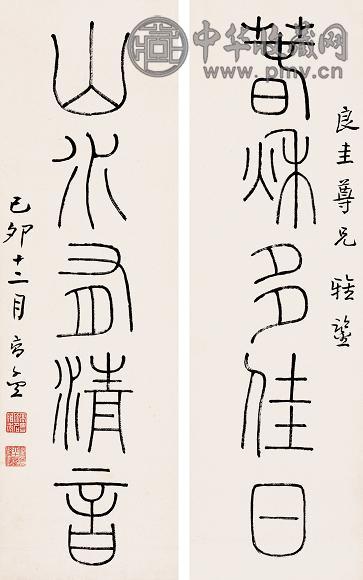 中华收藏网
www.pmv.cn
良圭尊兄 雅鑒
春秋多佳日
山水有清音
己卯十二月